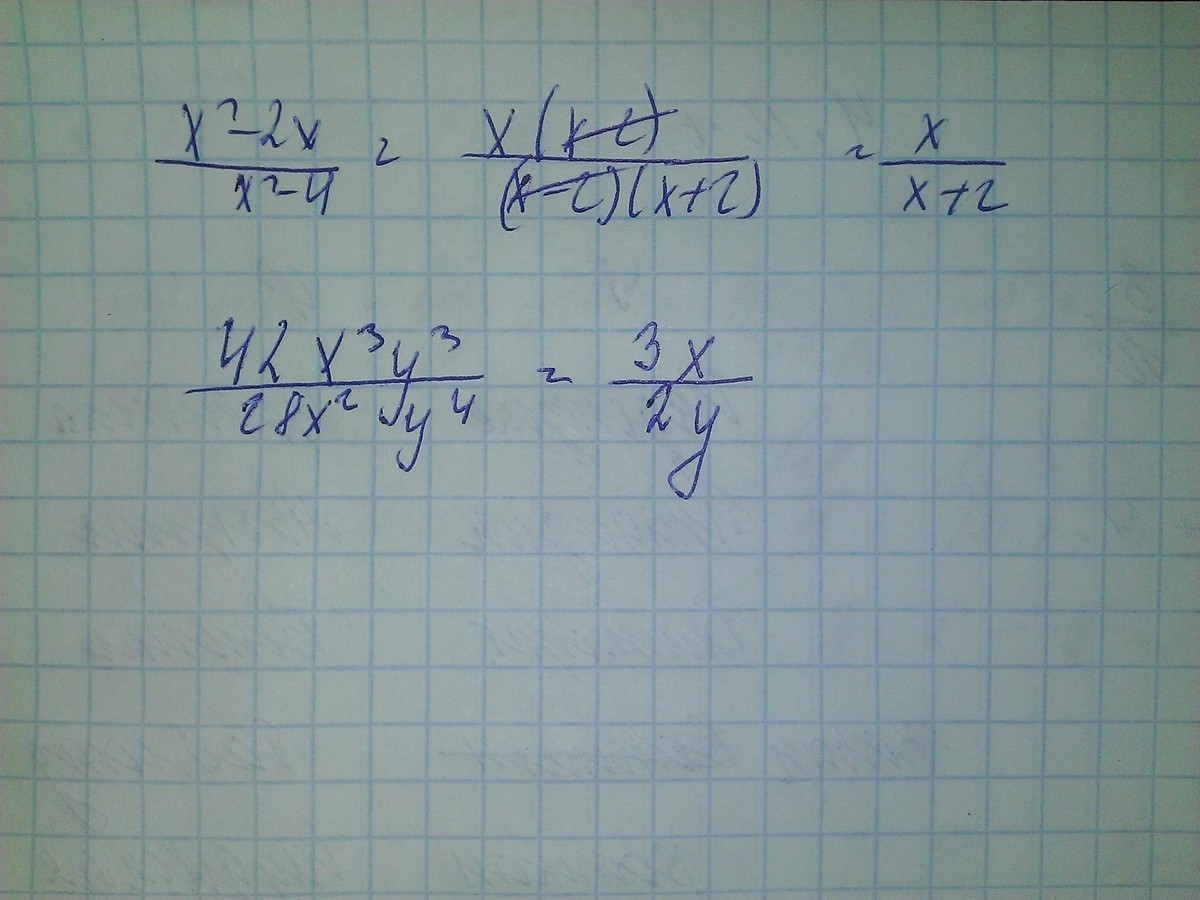 x²-2x / x²-4 = x(x-2) / (x-2)(x+2) = x / x+2
42x³y³ / 28x²y⁴ = 3x / 2y